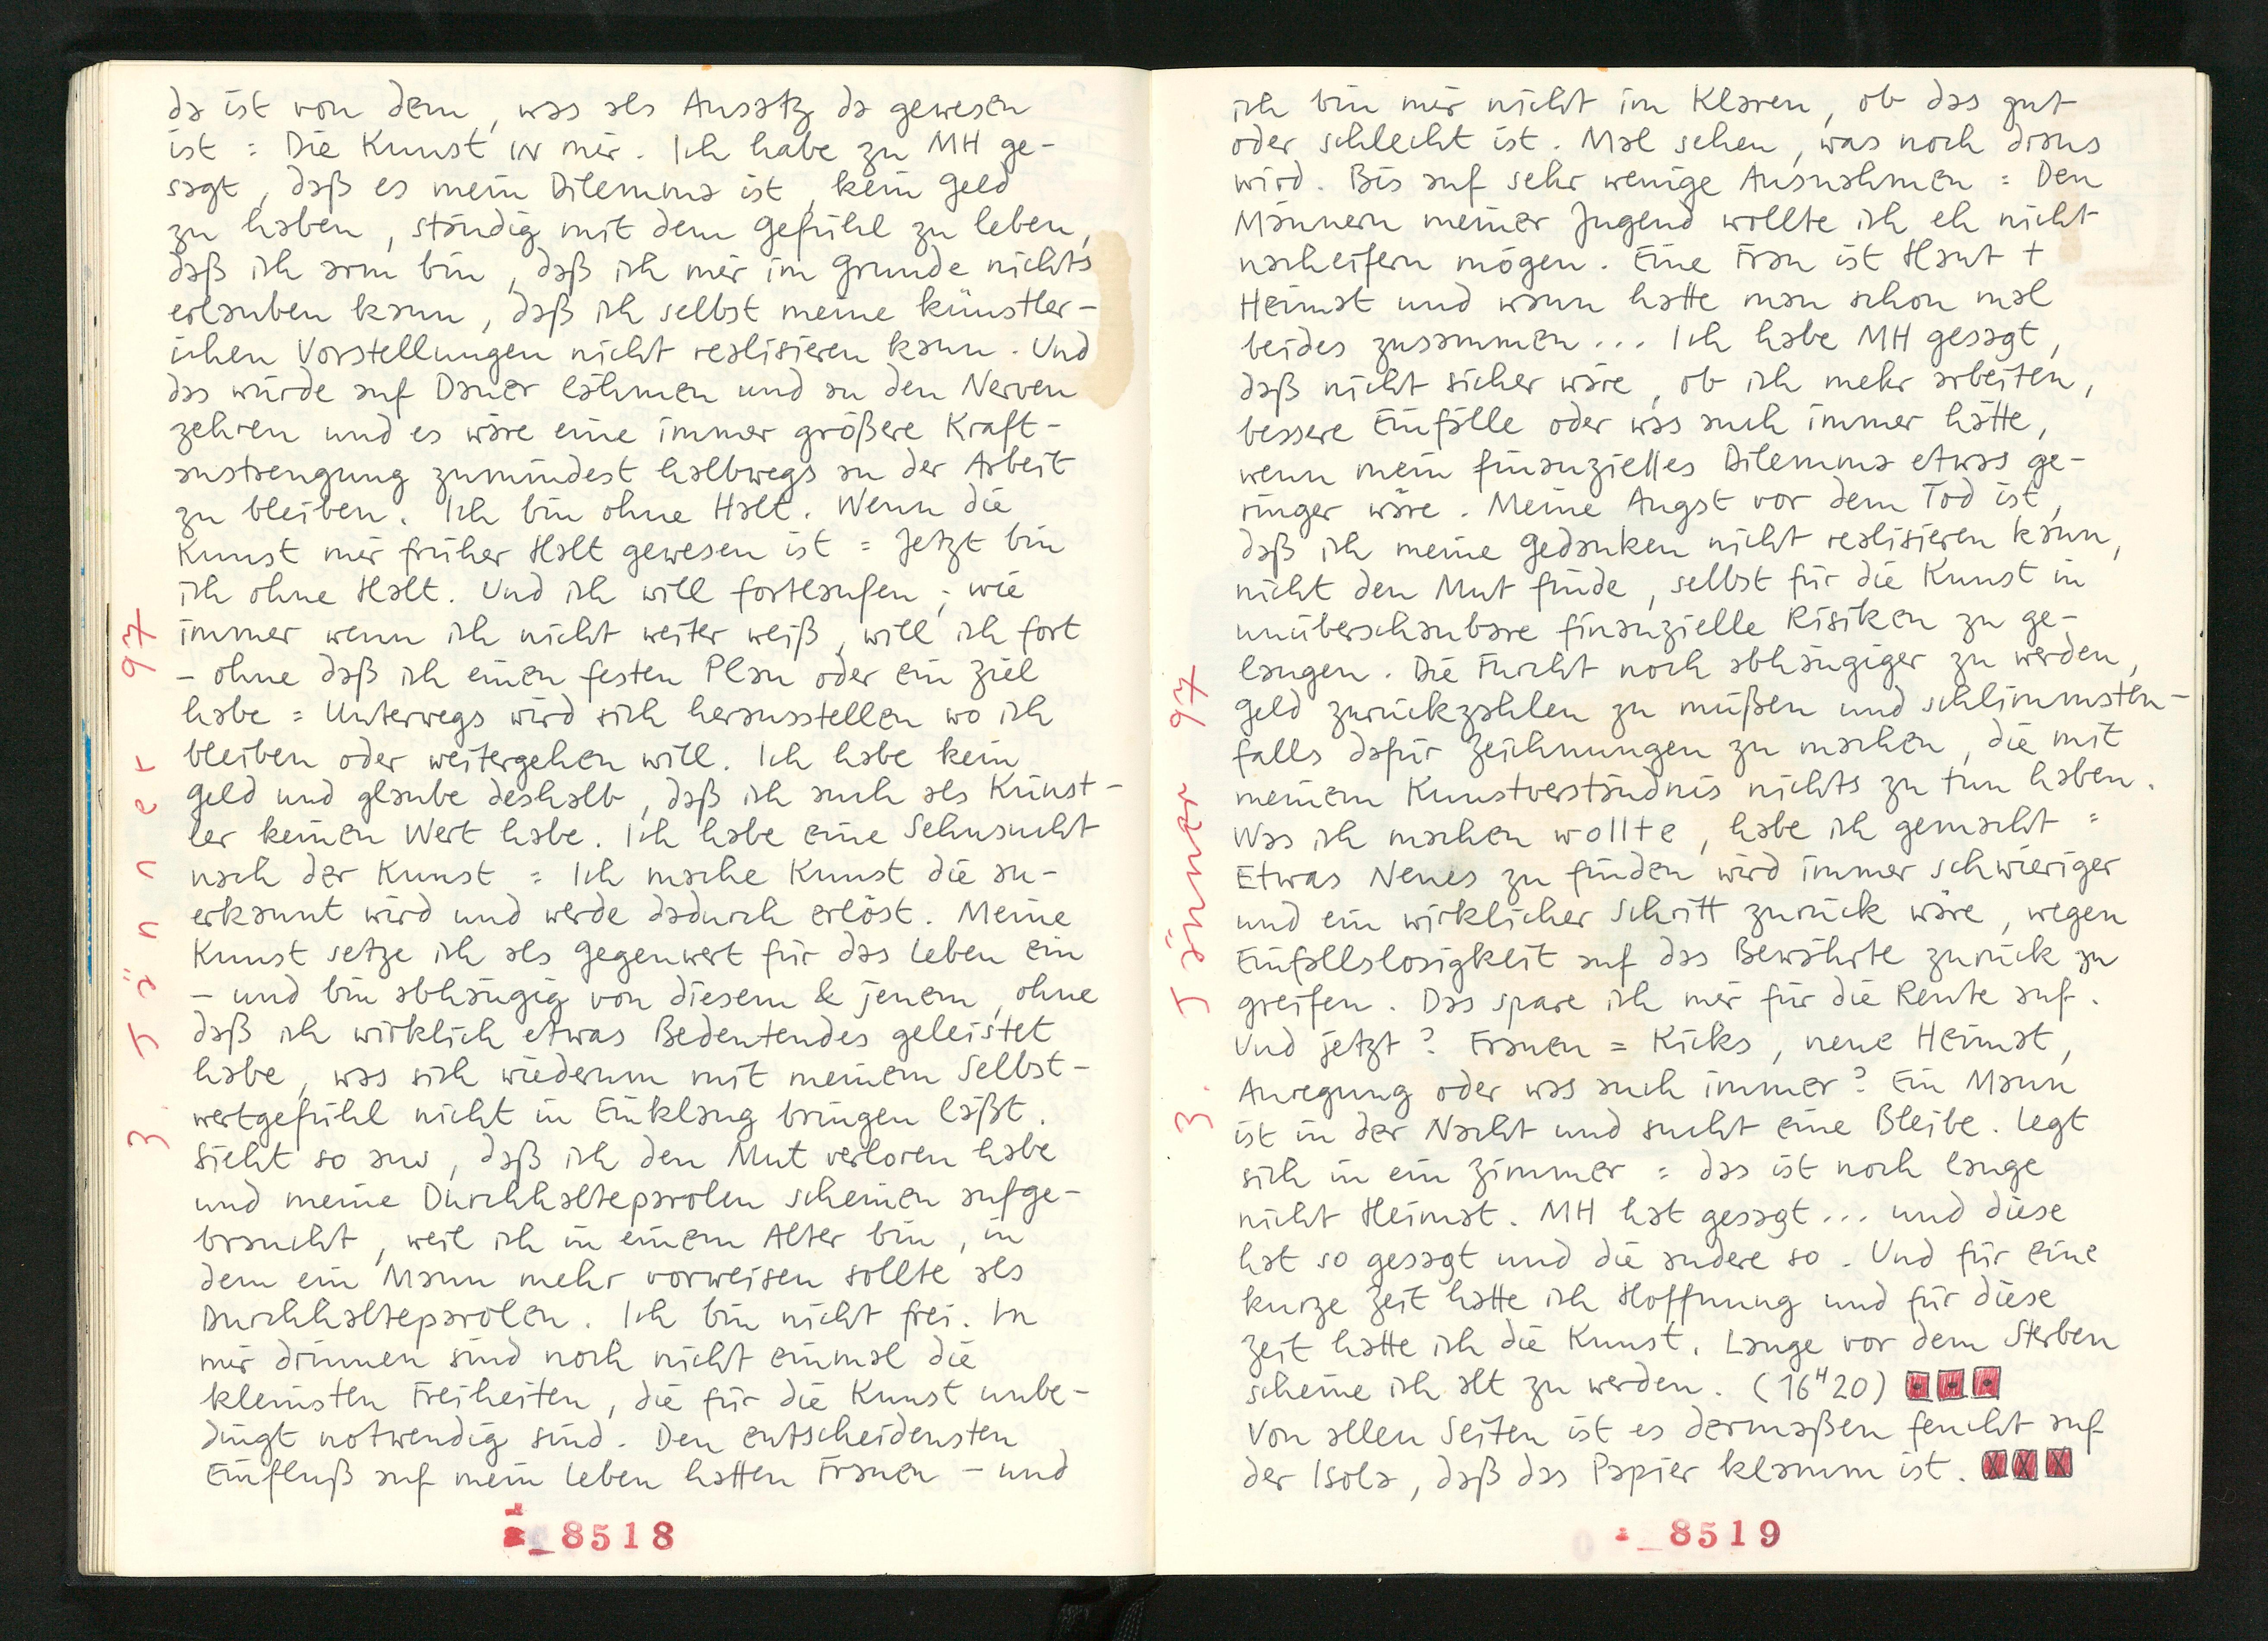 da ist von dem, was als Ansatz da gewesen
ist = Die Kunst in mir. Ich habe zu MH ge-
sagt, daß es mein Dilemma ist, kein Geld
zu haben, ständig mit dem Gefühl zu leben,
daß ich arm bin, daß ich mir im Grunde nichts
erlauben kann, daß ich selbst meine künstler-
ichen Vorstellungen nicht realisieren kann. Und
das würde auf Dauer lähmen und an den Nerven
zehren und es wäre eine immer größere Kraft-
anstrengung zumindest halbwegs an der Arbeit
zu bleiben. Ich bin ohne Halt. Wenn die
Kunst mir früher Halt gewesen ist = Jetzt bin
ich ohne Halt. Und ich will fortlaufen; wie
immer wenn ich nicht weiter weiß, will ich fort
– ohne daß ich einen festen Plan oder ein Ziel
habe = Unterwegs wird sich herausstellen wo ich
bleiben oder weitergehen will. Ich habe kein
Geld und glaube deshalb, daß ich auch als Künst-
ler keinen Wert habe. Ich habe eine Sehnsucht
nach der Kunst = Ich mache Kunst die an-
erkannt wird und werde dadurch erlöst. Meine
Kunst setze ich als Gegenwert für das Leben ein
– und bin abhängig von diesem & jenem, ohne
daß ich wirklich etwas Bedeutendes geleistet
habe, was sich wiederum mit meinem Selbst-
wertgefühl nicht in Einklang bringen läßt.
Sieht so aus, daß ich den Mut verloren habe
und meine Durchhalteparolen scheinen aufge-
braucht, weil ich in einem Alter bin, in
dem ein Mann mehr vorweisen sollte als
Durchhalteparolen. Ich bin nicht frei. In
mir drinnen sind noch nicht einmal die
kleinsten Freiheiten, die für die Kunst unbe-
dingt notwendig sind. Den entscheidensten
Einfluß auf mein Leben hatten Frauen – und
3. Jänner 97
8518
ich bin mir nicht im Klaren, ob das gut
oder schlecht ist. Mal sehen, was noch draus
wird. Bis auf sehr wenige Ausnahmen = Den
Männern meiner Jugend wollte ich eh nicht
nacheifern mögen. Eine Frau ist Haut +
Heimat und wann hatte man schon mal
beides zusammen... Ich habe MH gesagt,
daß nicht sicher wäre, ob ich mehr arbeiten,
bessere Einfälle oder was auch immer hätte,
wenn mein finanzielles Dilemma etwas ge-
ringer wäre. Meine Angst vor dem Tod ist,
daß ich meine Gedanken nicht realisieren kann,
nicht den Mut finde, selbst für die Kunst in
unüberschaubare finanzielle Risiken zu ge-
langen. Die Furcht noch abhängiger zu werden,
Geld zurückzahlen zu müßen und schlimmsten-
falls dafür Zeichnungen zu machen, die mit
meinem Kunstverständnis nichts zu tun haben.
Was ich machen wollte, habe ich gemacht =
Etwas Neues zu finden wird immer schwieriger
und ein wirklicher Schritt zurück wäre, wegen
Einfallslosigkeit auf das Bewährte zurück zu
greifen. Das spare ich mir für die Rente auf.
Und jetzt? Frauen = Kicks, neue Heimat,
Anregung oder was auch immer? Ein Mann
ist in der Nacht und sucht eine Bleibe. Legt
sich in ein Zimmer = das ist noch lange
nicht Heimat. MH hat gesagt... und diese
hat so gesagt und die andere so. Und für eine
kurze Zeit hatte ich Hoffnung und für diese
Zeit hatte ich die Kunst. Lange vor dem Sterben
scheine ich alt zu werden. (16H20)
Von allen Seiten ist es dermaßen feucht auf
der Isola, daß das Papier klamm ist.
3. Jänner 97
8519